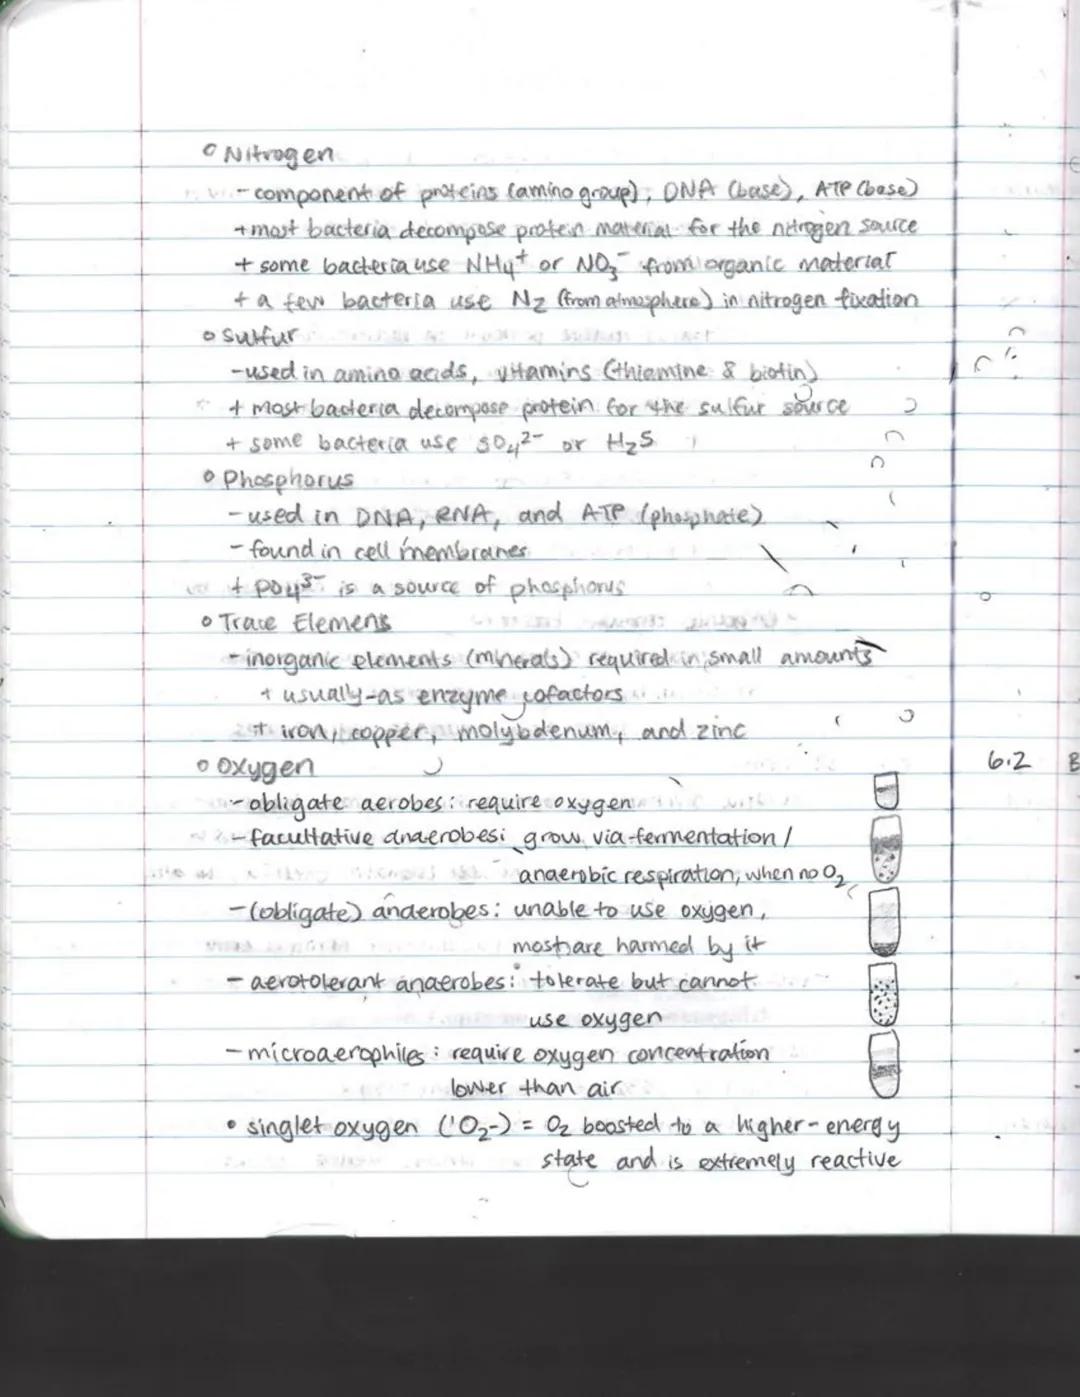 ○ Nitrogen
- component of proteins (amino group), DNA (base), ATP (base)
+ most bacteria decompose protein material for the nitrogen source
+ some bacteria use NH₄⁺ or NO₃⁻ from organic material
+ a few bacteria use N₂ (from atmosphere) in nitrogen fixation
○ Sulfur
- used in amino acids, vitamins (thiamine & biotin)
+ most bacteria decompose protein for the sulfur source
+ some bacteria use SO₄²⁻ or H₂S
○ Phosphorus
- used in DNA, RNA, and ATP (phosphate)
- found in cell membranes
+ PO₄³⁻ is a source of phosphorus
○ Trace Elemens
- inorganic elements (minerals) required in small amounts
+ usually as enzyme cofactors
+ iron, copper, molybdenum, and zinc
○ Oxygen
6.2
- obligate aerobes: require oxygen
- facultative anaerobes: grow via fermentation /
anaerobic respiration, when no O₂
- (obligate) anaerobes: unable to use oxygen,
most are harmed by it
- aerotolerant anaerobes: tolerate but cannot
use oxygen
- microaerophiles: require oxygen concentration
lower than air
• singlet oxygen (¹O₂-) = O₂ boosted to a higher-energy
state and is extremely reactive